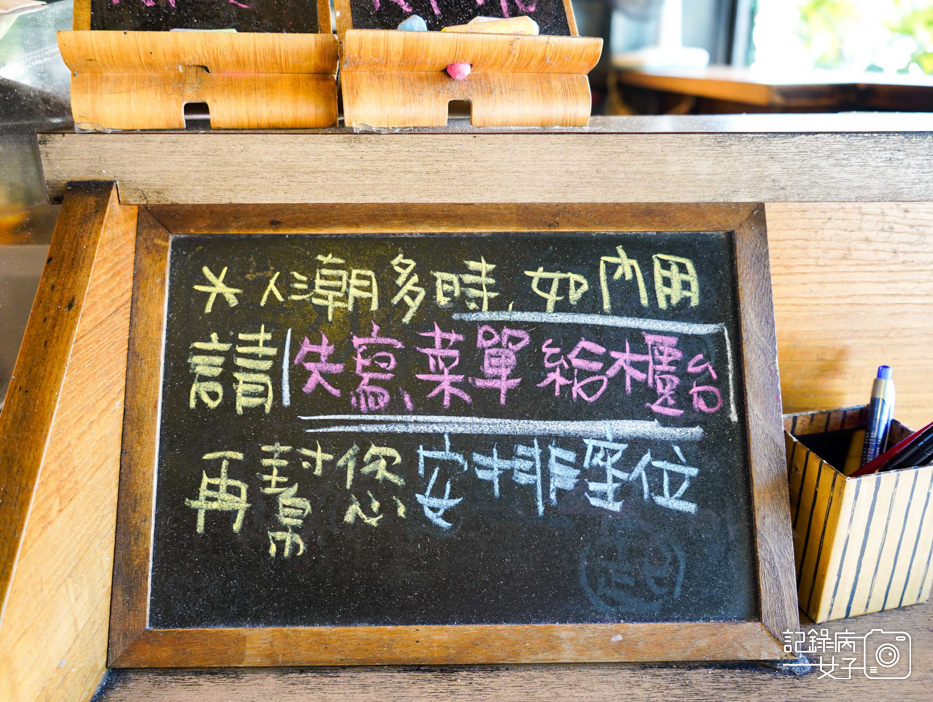 ※人潮多時,如內用
請失寫菜單給櫃台
再幫您安排座位
記錄病
女子